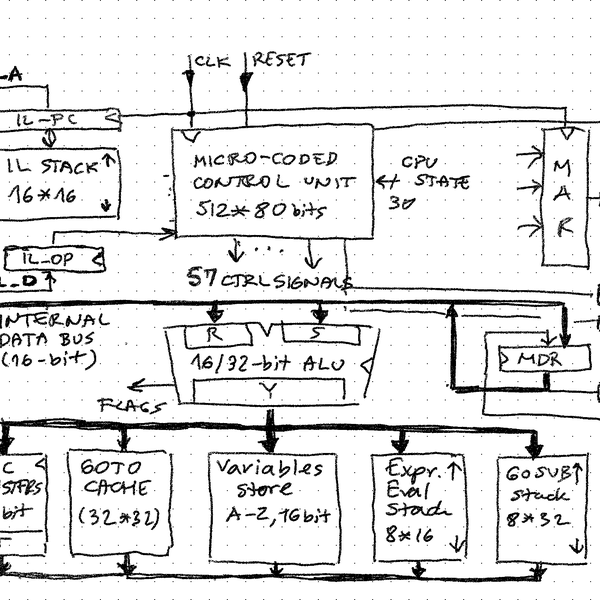 CLK RESET
-A
IL-PC
IL STACK
16*16
MICRO-CODED
CONTROL UNIT
512*80bits
CPU
STATE
30
M
A
R
IL-OP
L-D
57 CTRL SIGNALS
INTERNAL
DATA BUS
(16-bit)
R
S
16/32-bit ALU
Y
FLAGS
MDR
C
STFRS
bit
GOTO
CACHE
(32*32)
Variables
store
A-Z, 16bit
Expr.
Eval
Stack
8*16
GOSUB
stack
8*32